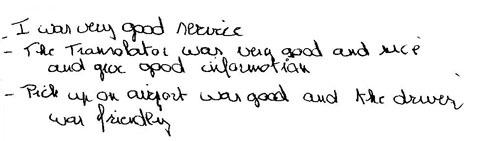 - I was very good service
- The Translator was very good and nice
and give good information
- Pick up on airport was good and the driver
was friendly